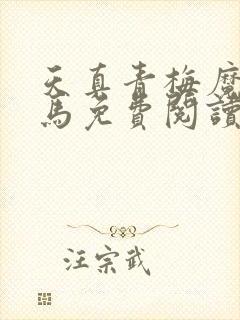 天真青梅魔
馬免費閱讀
汪宗武